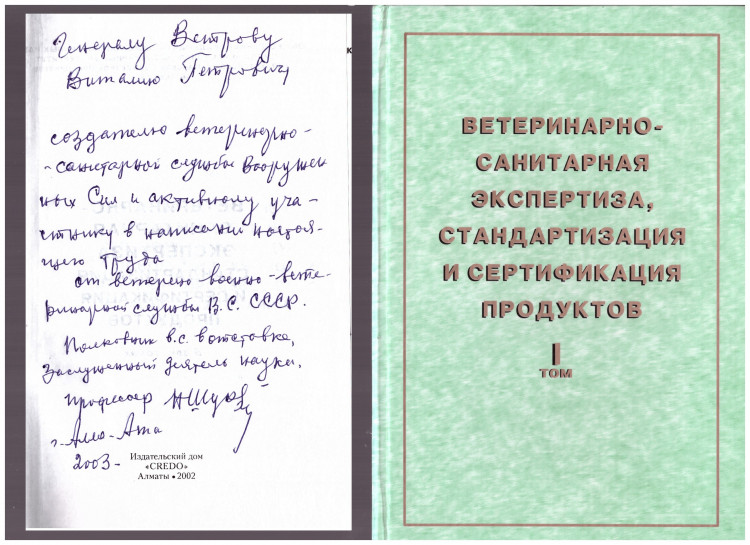 Генералу Ветрову
Виталию Петровичу
создателю ветеринарно-
-санитарной службы Вооружен
ных Сил и активному уча-
стнику в написании настоя-
щего Труда
от ветерана военно-вете-
ринарной службы В.С. СССР.
Полковник в.с. в отставке,
Заслуженный деятель науки,
профессор
г. Алма-Ата
2003-
Издательский дом
«CREDO»
Алматы • 2002
ВЕТЕРИНАРНО-
САНИТАРНАЯ
ЭКСПЕРТИЗА,
СТАНДАРТИЗАЦИЯ
И СЕРТИФИКАЦИЯ
ПРОДУКТОВ
I
ТОМ